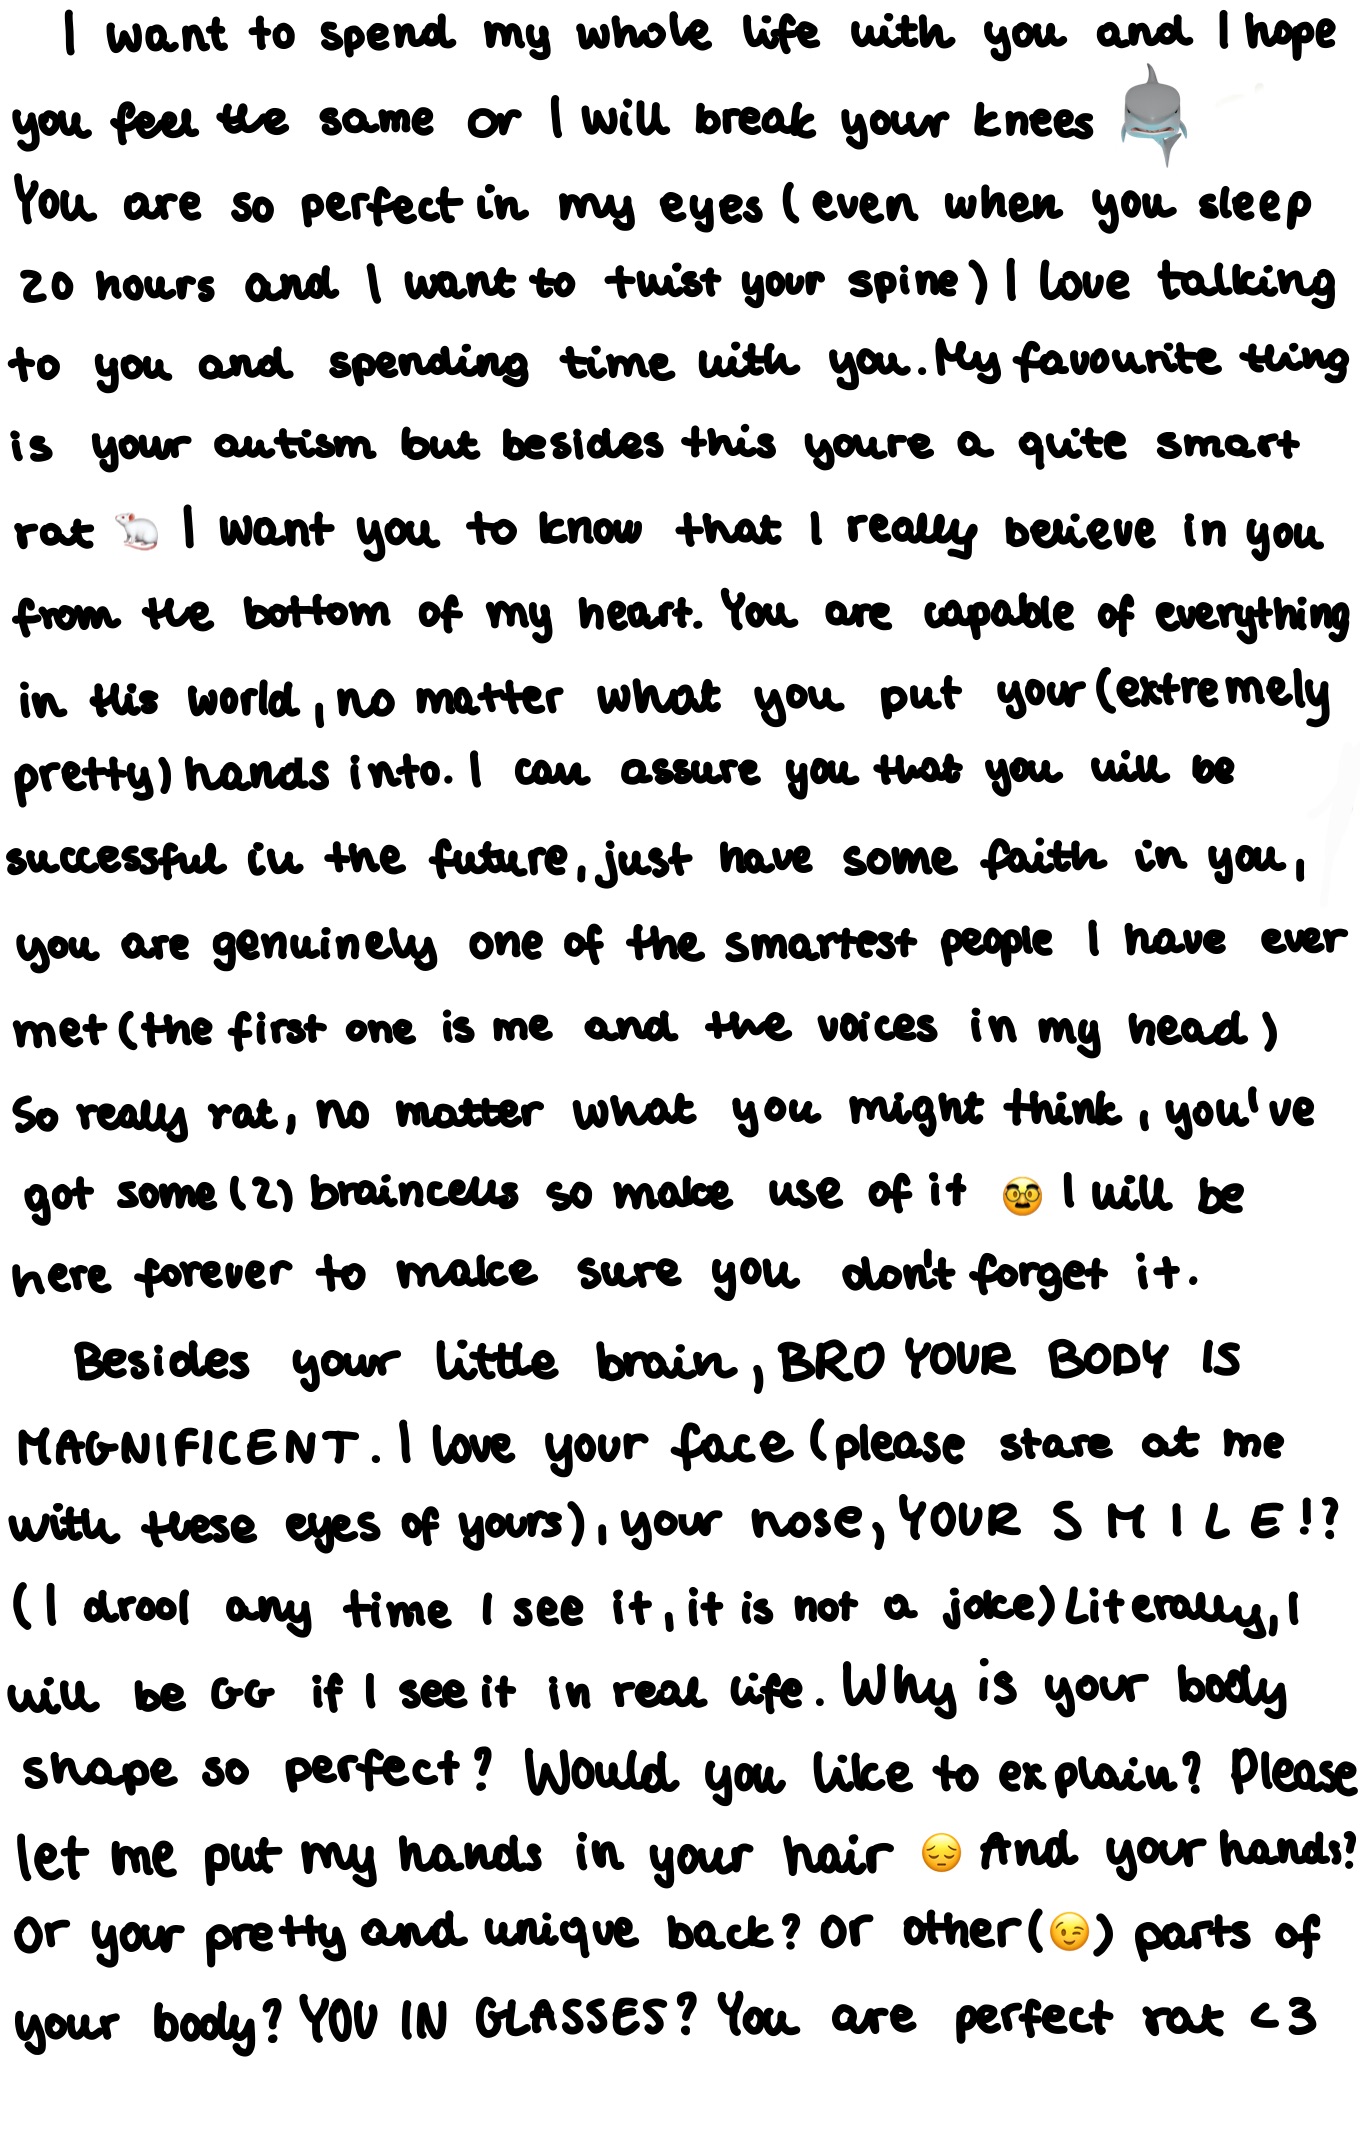 I want to spend my whole life with you and I hope
you feel the same or I will break your knees 🦈
You are so perfect in my eyes (even when you sleep
20 hours and I want to twist your spine) I love talking
to you and spending time with you. My favourite thing
is your autism but besides this youre a quite smart
rat 🐁 I want you to know that I really believe in you
from the bottom of my heart. You are capable of everything
in this world, no matter what you put your (extremely
pretty) hands into. I can assure you that you will be
successful in the future, just have some faith in you,
you are genuinely one of the smartest people I have ever
met (the first one is me and the voices in my head)
So really rat, no matter what you might think, you've
got some (2) braincells so make use of it 🥸 I will be
here forever to make sure you don't forget it.
Besides your little brain, BRO YOUR BODY IS
MAGNIFICENT. I love your face (please stare at me
with these eyes of yours), your nose, YOUR S M I L E !?
(I drool any time I see it, it is not a joke) Literally, I
will be GG if I see it in real life. Why is your body
shape so perfect? Would you like to explain? Please
let me put my hands in your hair 😔 And your hands?
Or your pretty and unique back? Or other (😉) parts of
your body? YOU IN GLASSES? You are perfect rat <3